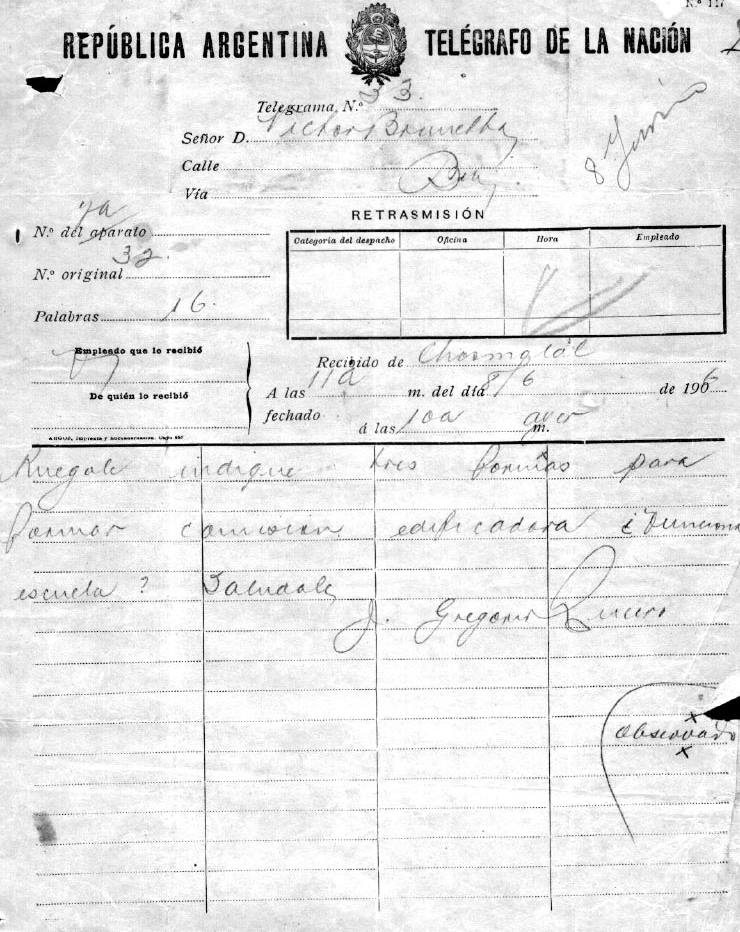 Nº 117
REPÚBLICA ARGENTINA TELÉGRAFO DE LA NACIÓN
Telegrama N.º 33.
Señor D. Victor Brunetta
8 Junio
Calle
Vía
RETRASMISIÓN
N.º del aparato
Categoría del despacho Oficina Hora Empleado
32.
N.º original
Palabras 16.
Empleado que lo recibió
Recibido de Chosmalal
A las 11a m. del día 8/6 de 1906
De quién lo recibió
fechado á las 10a ayer m.
Ruegole indique tres formas para
formar comision edificadora ¿Funciona
escuela? Saludale
J. Gregorio Lucero
observado